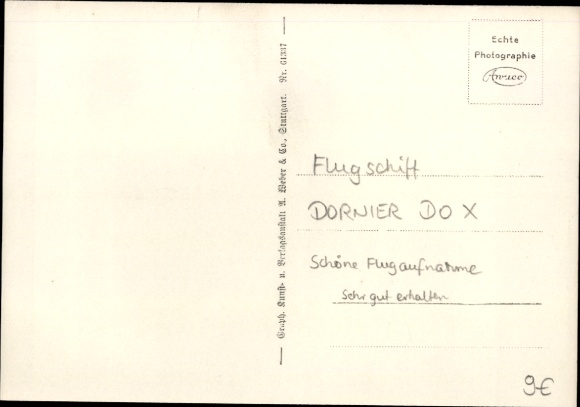 Graph. Kunst- u. Verlagsanstalt A. Weber & Co., Stuttgart. Nr. 61337
Echte
Photographie
Awuco
Flugschiff
DORNIER DO X
Schöne Flugaufnahme
Sehr gut erhalten
9€